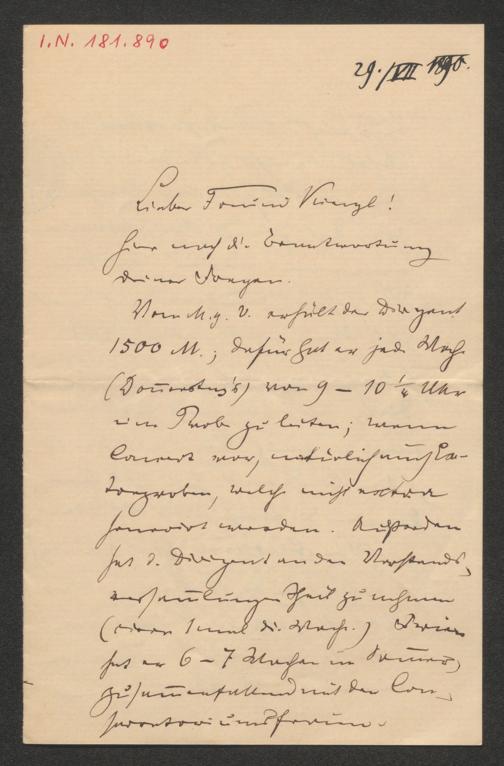 I.N. 181.890
29./VII 1890.
Lieber Freund Kienzl!
Hier noch die Beantwortung
deiner Fragen.
Vom M. g. V. erhält der Dirigent
1500 M.; dafür hat er jede Woche
(Donnerstags) von 9 – 10 1/4 Uhr
eine Probe zu leiten; wenn
Concert war, natürlich auch Ex-
traproben, welche nicht extra
honorirt werden. Außerdem
hat d. Dirigent an den Vorstands-
versammlungen Theil zu nehmen
(circa 1 mal die Woche.) Ferien
hat er 6 – 7 Wochen im Sommer,
zusammenfallend mit den Con-
servatoriumsferien.